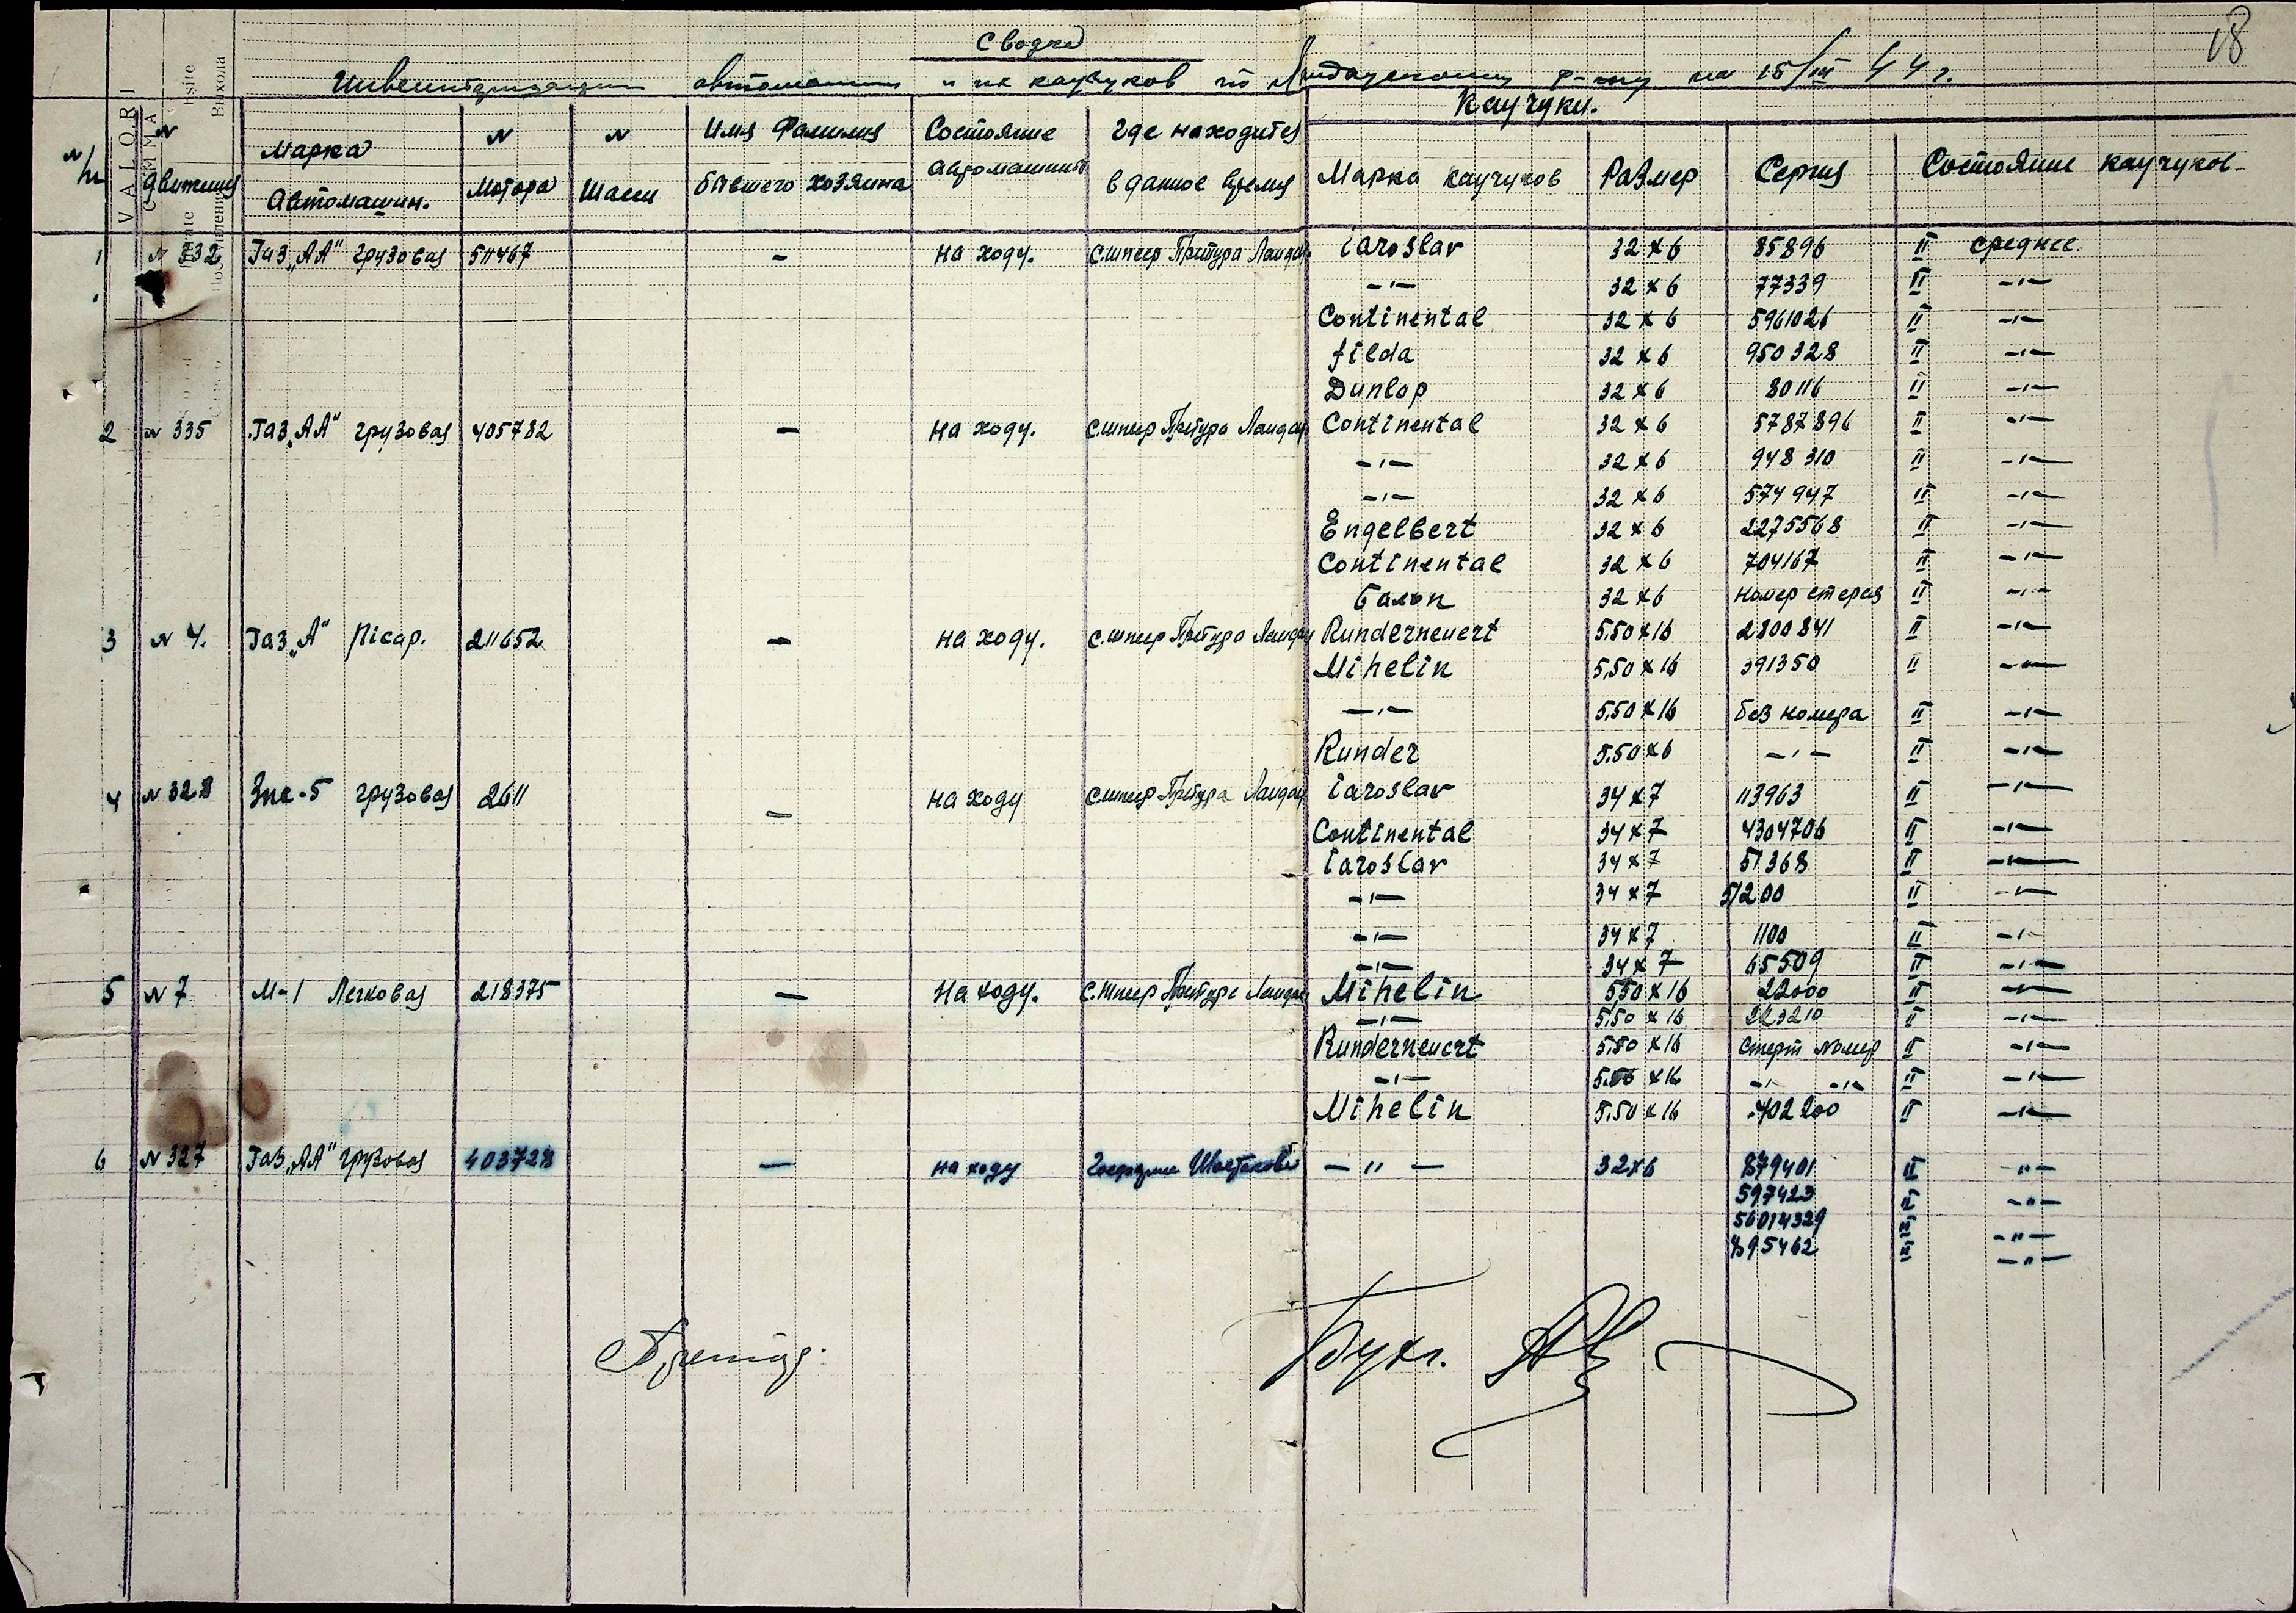 18
Сводка
Инвентаризации автомашин и их каучуков по Ландауському р-ну на 15/III 44 г.
VALORI
СУММА
Каучуки.
N п/п
N движения
Марка Автомашин.
N Мотора
N Шасси
Имя Фамилия бывшего хозяина
Состояние автомашины
Где находится в данное время
Марка каучуков
Размер
Серия
Состояние каучуков
1 N 332 Газ „АА" грузовая 511467 - на ходу. Претура Ландау Iaroslav 32 x 6 85896 II среднее
-"- 32 x 6 77339 II -"-
Continental 32 x 6 5961026 II -"-
filda 32 x 6 950328 II -"-
Dunlop 32 x 6 80116 II -"-
2 N 335 Газ „АА" грузовая 405782 - на ходу. Претура Ландау Continental 32 x 6 5787896 II -"-
-"- 32 x 6 948310 II -"-
-"- 32 x 6 574947 II -"-
Engelbert 32 x 6 2275568 II -"-
Continental 32 x 6 704167 II -"-
Балон 32 x 6 номер стерся II -"-
3 N 4. Газ „А" Пicap. 211652 - на ходу. Претура Ландау Runderneuert 5.50 x 16 2800841 II -"-
Mihelin 5.50 x 16 391350 II -"-
-"- 5.50 x 16 без номера II -"-
Runder 5.50 x 6 -"- II -"-
4 N 328 Зис-5 грузовая 2611 - на ходу Претура Ландау Iaroslav 34 x 7 113963 II -"-
Continental 34 x 7 4304706 II -"-
Iaroslav 34 x 7 51368 II -"-
-"- 34 x 7 51200 II -"-
-"- 34 x 7 1100 II -"-
-"- 34 x 7 65509 II -"-
5 N 7 М-1 Легковая 218375 - На ходу. Претура Ландау Mihelin 550 x 16 22000 II -"-
-"- 5.50 x 16 223210 II -"-
Runderneuert 5.50 x 16 стерт номер II -"-
-"- 5.50 x 16 -"- -"- II -"-
Mihelin 5.50 x 16 402200 II -"-
6 N 327 Газ „АА" грузовая 403728 - на ходу -"- 32x6 879401 II -"-
597423 II -"-
56014329 II -"-
895462 II -"-
Бухг.